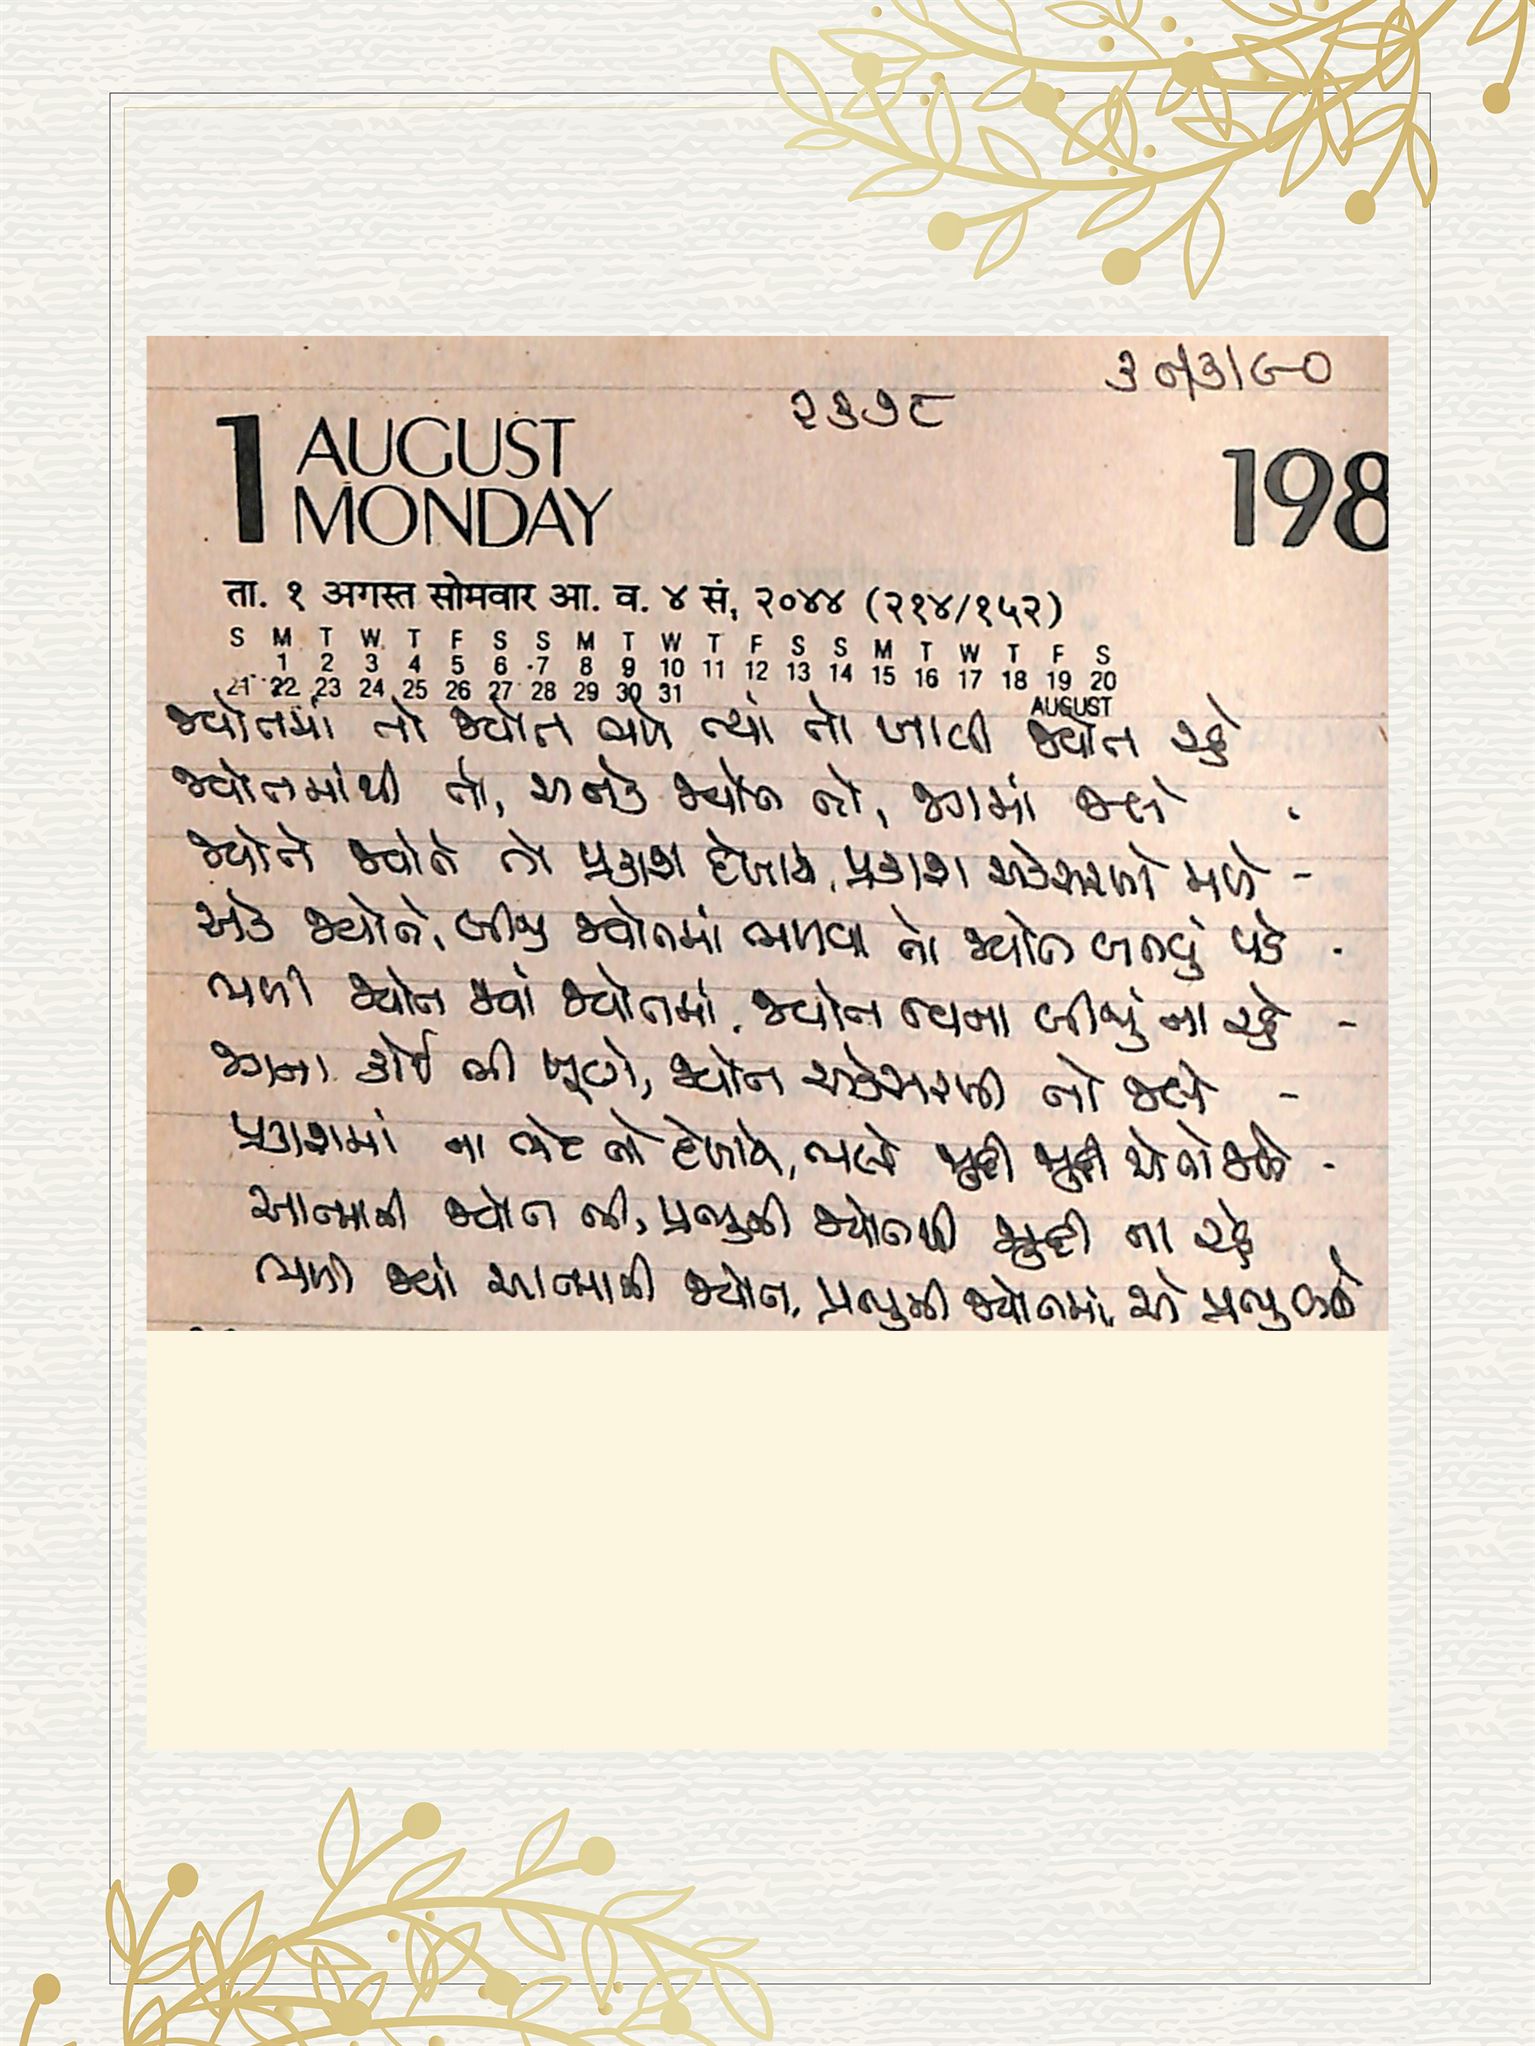 ૩૦/૩/૯૦
૨૩૭૮
1 AUGUST
MONDAY
198
ता. १ अगस्त सोमवार आ. व. ४ सं, २०४४ (२१४/१५२)
S M T W T F S S M T W T F S S M T W T F S
1 2 3 4 5 6 7 8 9 10 11 12 13 14 15 16 17 18 19 20
21 22 23 24 25 26 27 28 29 30 31
AUGUST
જ્યોતમાં તો જ્યોત ભળે ત્યાં તો ખાલી જ્યોત રહે
જ્યોતમાંથી તો, અનેક જ્યોત તો, જગમાં જલે
જ્યોતે જ્યોતે તો પ્રકાશ દેખાય, પ્રકાશ એકસરખો મળે -
એક જ્યોતે, બીજી જ્યોતમાં ભળવા તો જ્યોત બનવું પડે -
ભળી જ્યોત જ્યાં જ્યોતમાં, જ્યોત વિના બીજું ના રહે -
જગના કોઈ ભી ખૂણે, જ્યોત એકસરખી તો જલે -
પ્રકાશમાં ના ભેદ તો દેખાય, ભલે જુદી જુદી એ તો જલે -
આત્માની જ્યોત ભી, પ્રભુની જ્યોતથી જુદી ના રહે
ભળી જ્યાં આત્માની જ્યોત, પ્રભુની જ્યોતમાં, એ પ્રભુ બને